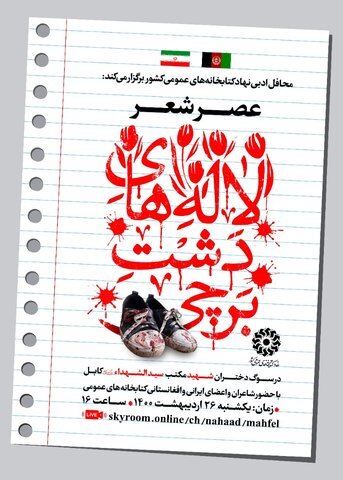 محافل ادبی نهاد کتابخانه‌های عمومی کشور برگزار می‌کند:
عصر شعر
لاله‌های
دشت
برچی
در سوگ دختران شهید مکتب سیدالشهداء کابل
با حضور شاعران و اعضای ایرانی و افغانستانی کتابخانه‌های عمومی
زمان: یکشنبه ۲۶ اردیبهشت ۱۴۰۰ • ساعت ۱۶
LIVE skyroom.online/ch/nahaad/mahfel